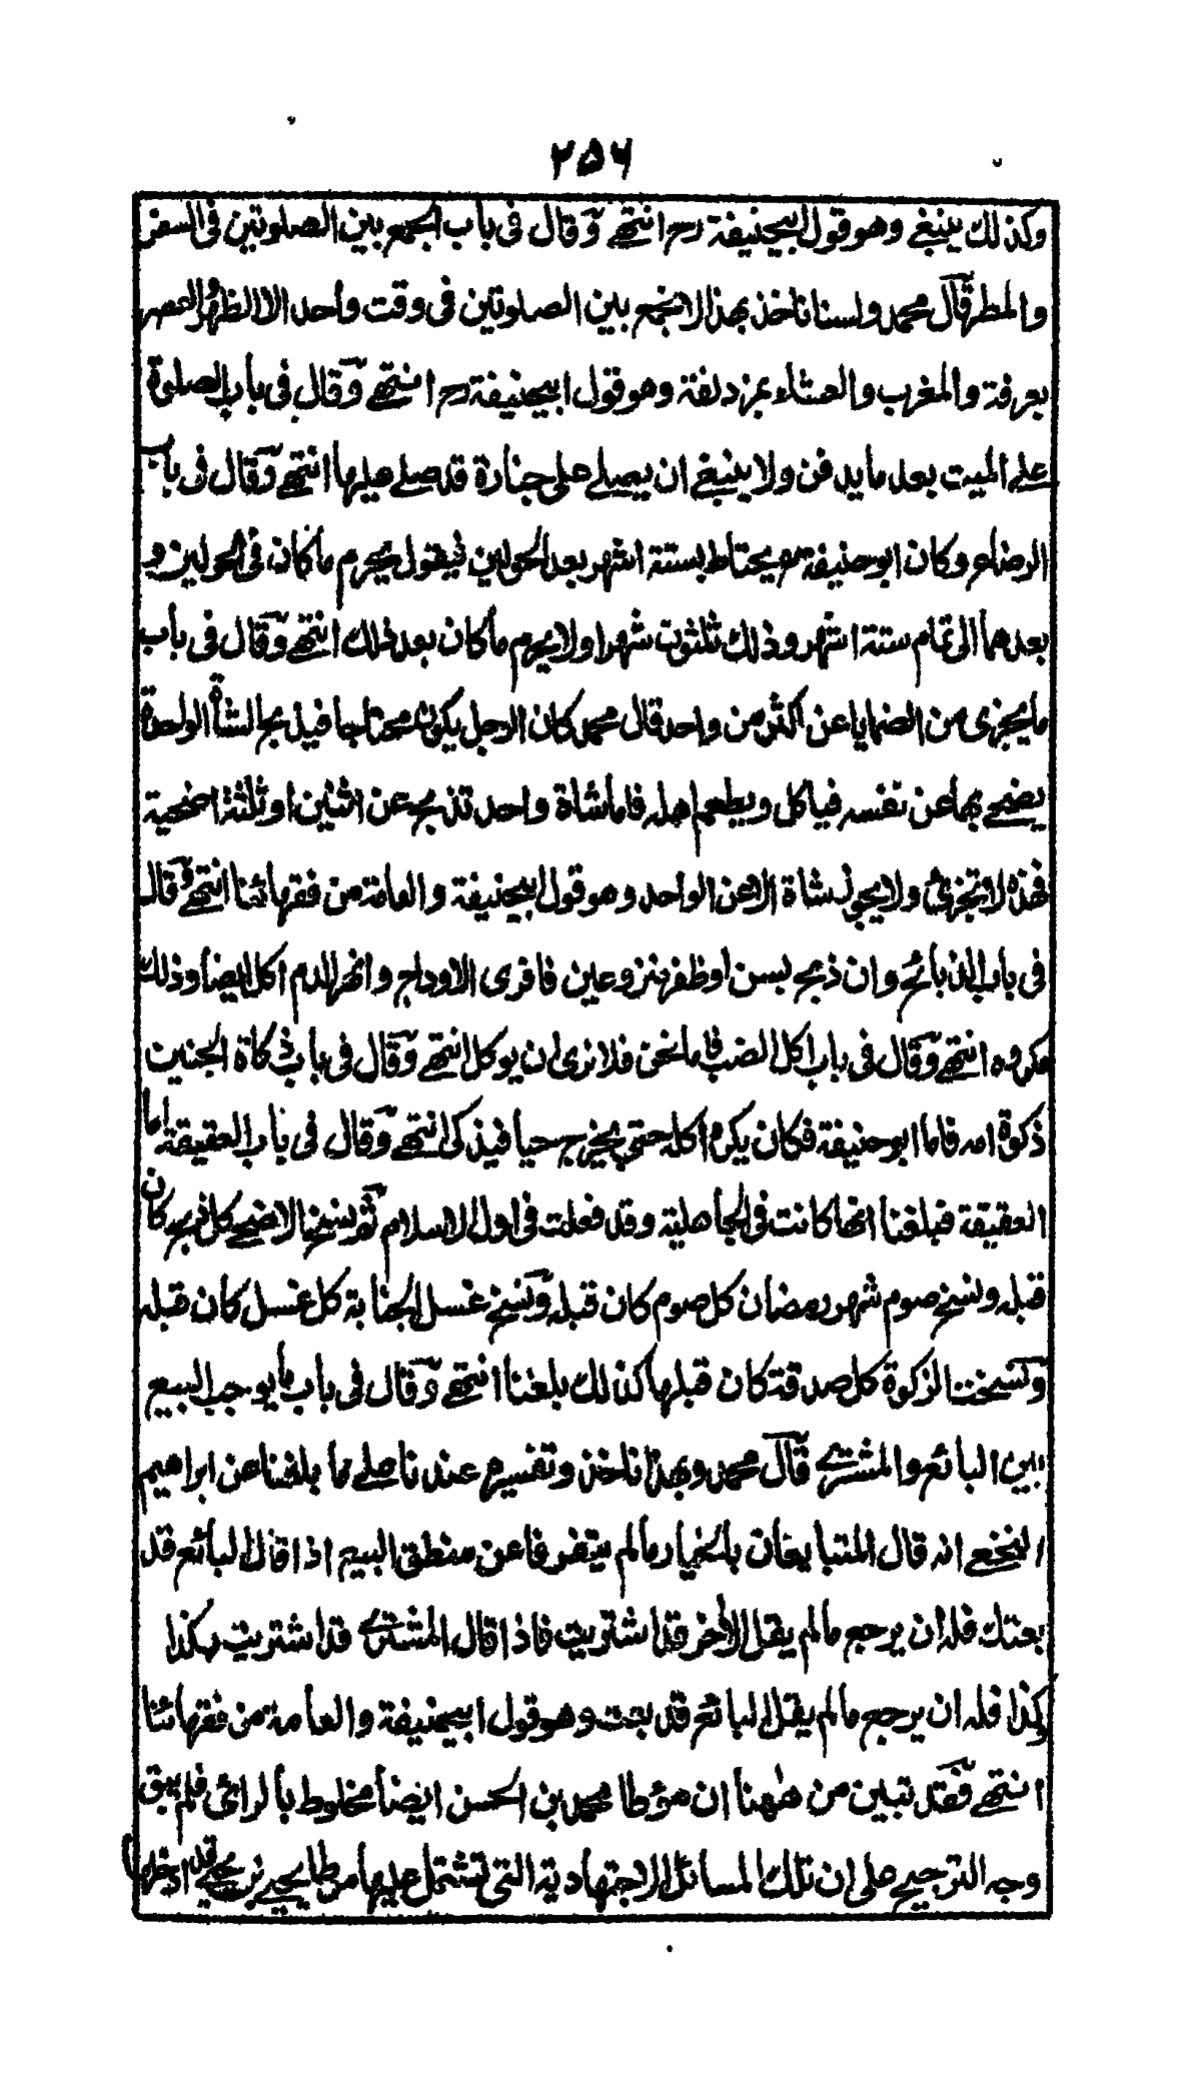 ٢٥٦
وكذلك ينبغي وهو قول ابيحنيفة رح انتهے وقال فى باب الجمع بين الصلوتين فى السفر
والمطر قال محمد ولسنا ناخذ بهذا لا نجمع بين الصلوتين فى وقت واحد الا الظهر والعصر
بعرفة والمغرب والعشاء بمزدلفة وهو قول ابيحنيفة رح انتهے وقال فى باب الصلوة
علے الميت بعد ما يدفن ولا ينبغے ان يصلے على جنازة قد صلے عليها انتهے وقال فى باب
الرضاع وكان ابو حنيفة رح يحتاط بستة اشهر بعد الحولين فيقول يحرم ما كان فى الحولين و
بعدهما الى تمام ستة اشهر وذلك ثلثون شهرا ولا يحرم ما كان بعد ذلك انتهے وقال فى باب
ما يجزى من الضحايا عن اكثر من واحد قال محمد كان الرجل يكون محتاجا فيذبح الشاة الواحدة
يضحے بها عن نفسه فياكل ويطعم اهله فاما شاة واحد تذبح عن اثنين او ثلثة اضحية
فهذه لا تجزئ ولا يجوز شاة الا عن الواحد وهو قول ابيحنيفة والعامة من فقهائنا انتهے وقال
فى باب الذبائح وان ذبح بسن او ظفر منزوعين فافرى الاوداج وانهر الدم اكل ايضا وذلك
مكروه انتهے وقال فى باب اكل الضب فاما نحن فلا نرى ان يوكل انتهے وقال فى باب ذكاة الجنين
ذكوة امه فاما ابو حنيفة فكان يكره اكله حتى يخرج حيا فيذكى انتهے وقال فى باب العقيقة اما
العقيقة فبلغنا انها كانت فى الجاهلية وقد فعلت فى اول الاسلام ثم نسخ الاضحے كل ذبح كان
قبله ونسخ صوم شهر رمضان كل صوم كان قبله ونسخ غسل الجنابة كل غسل كان قبله
ونسخت الزكوة كل صدقة كان قبلها كذلك بلغنا انتهے وقال فى باب ما يوجب البيع
بين البائع والمشترے قال محمد وبهذا ناخذ وتفسيره عندنا صلے ما بلغنا عن ابراهيم
النخعے انه قال المتبايعان بالخيار ما لم يتفرقا عن منطق البيع اذا قال البائع قد
بعتك فله ان يرجع ما لم يقل الاخر قد اشتريت فاذا قال المشترے قد اشتريت بكذا
وكذا فله ان يرجع ما لم يقل البائع قد بعت وهو قول ابيحنيفة والعامة من فقهائنا
انتهے فقد تبين من ههنا ان مؤطا محمد بن الحسن ايضا مخلوط بالرائى فلم يبق
وجه الترجيح على ان تلك المسائل الاجتهادية التى تشتمل عليها مؤطا يحيى بن يحيے قد ادخلها